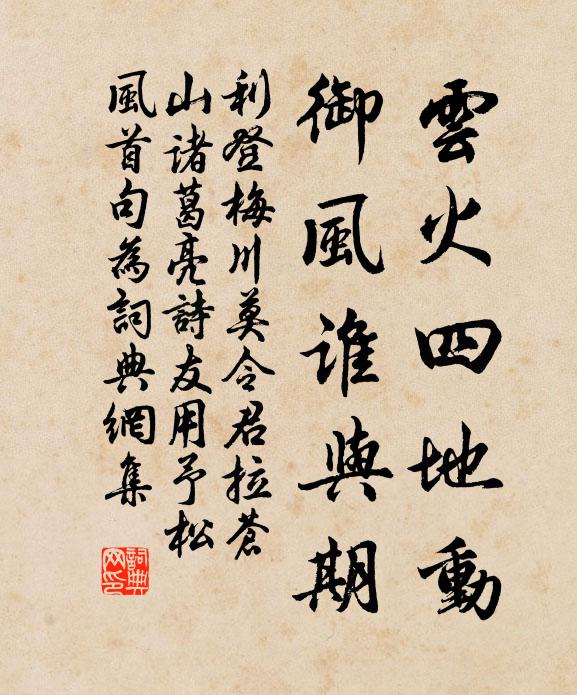 雲火四地動
御風誰與期
利登梅川莫令君拉蒼
山諸葛亮詩友用予松
風首句為詞典網集
詞典
网印